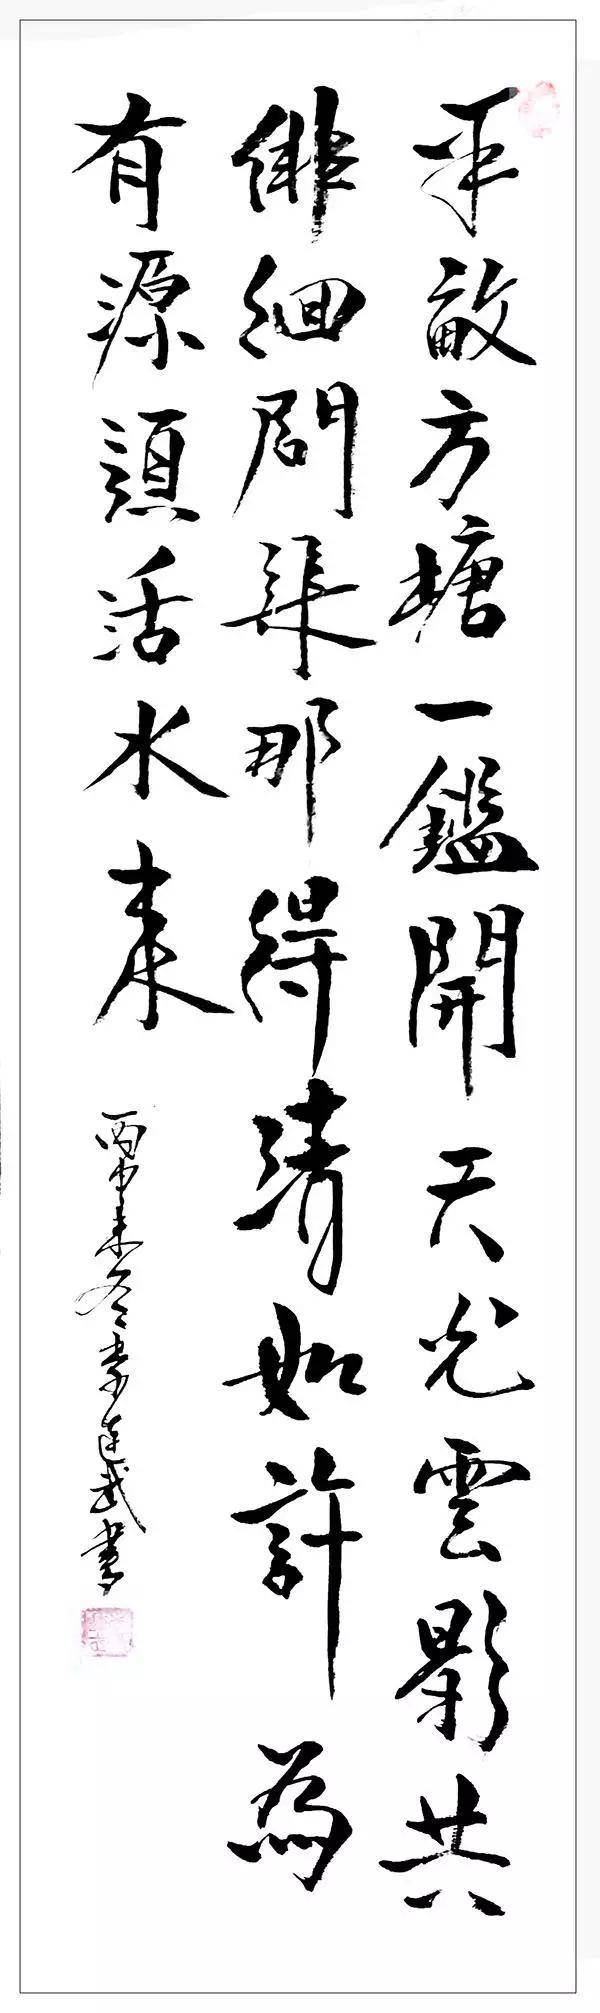 半畝方塘一鑑開天光雲影共
徘徊問渠那得清如許為
有源頭活水來
丙申末冬李連武書